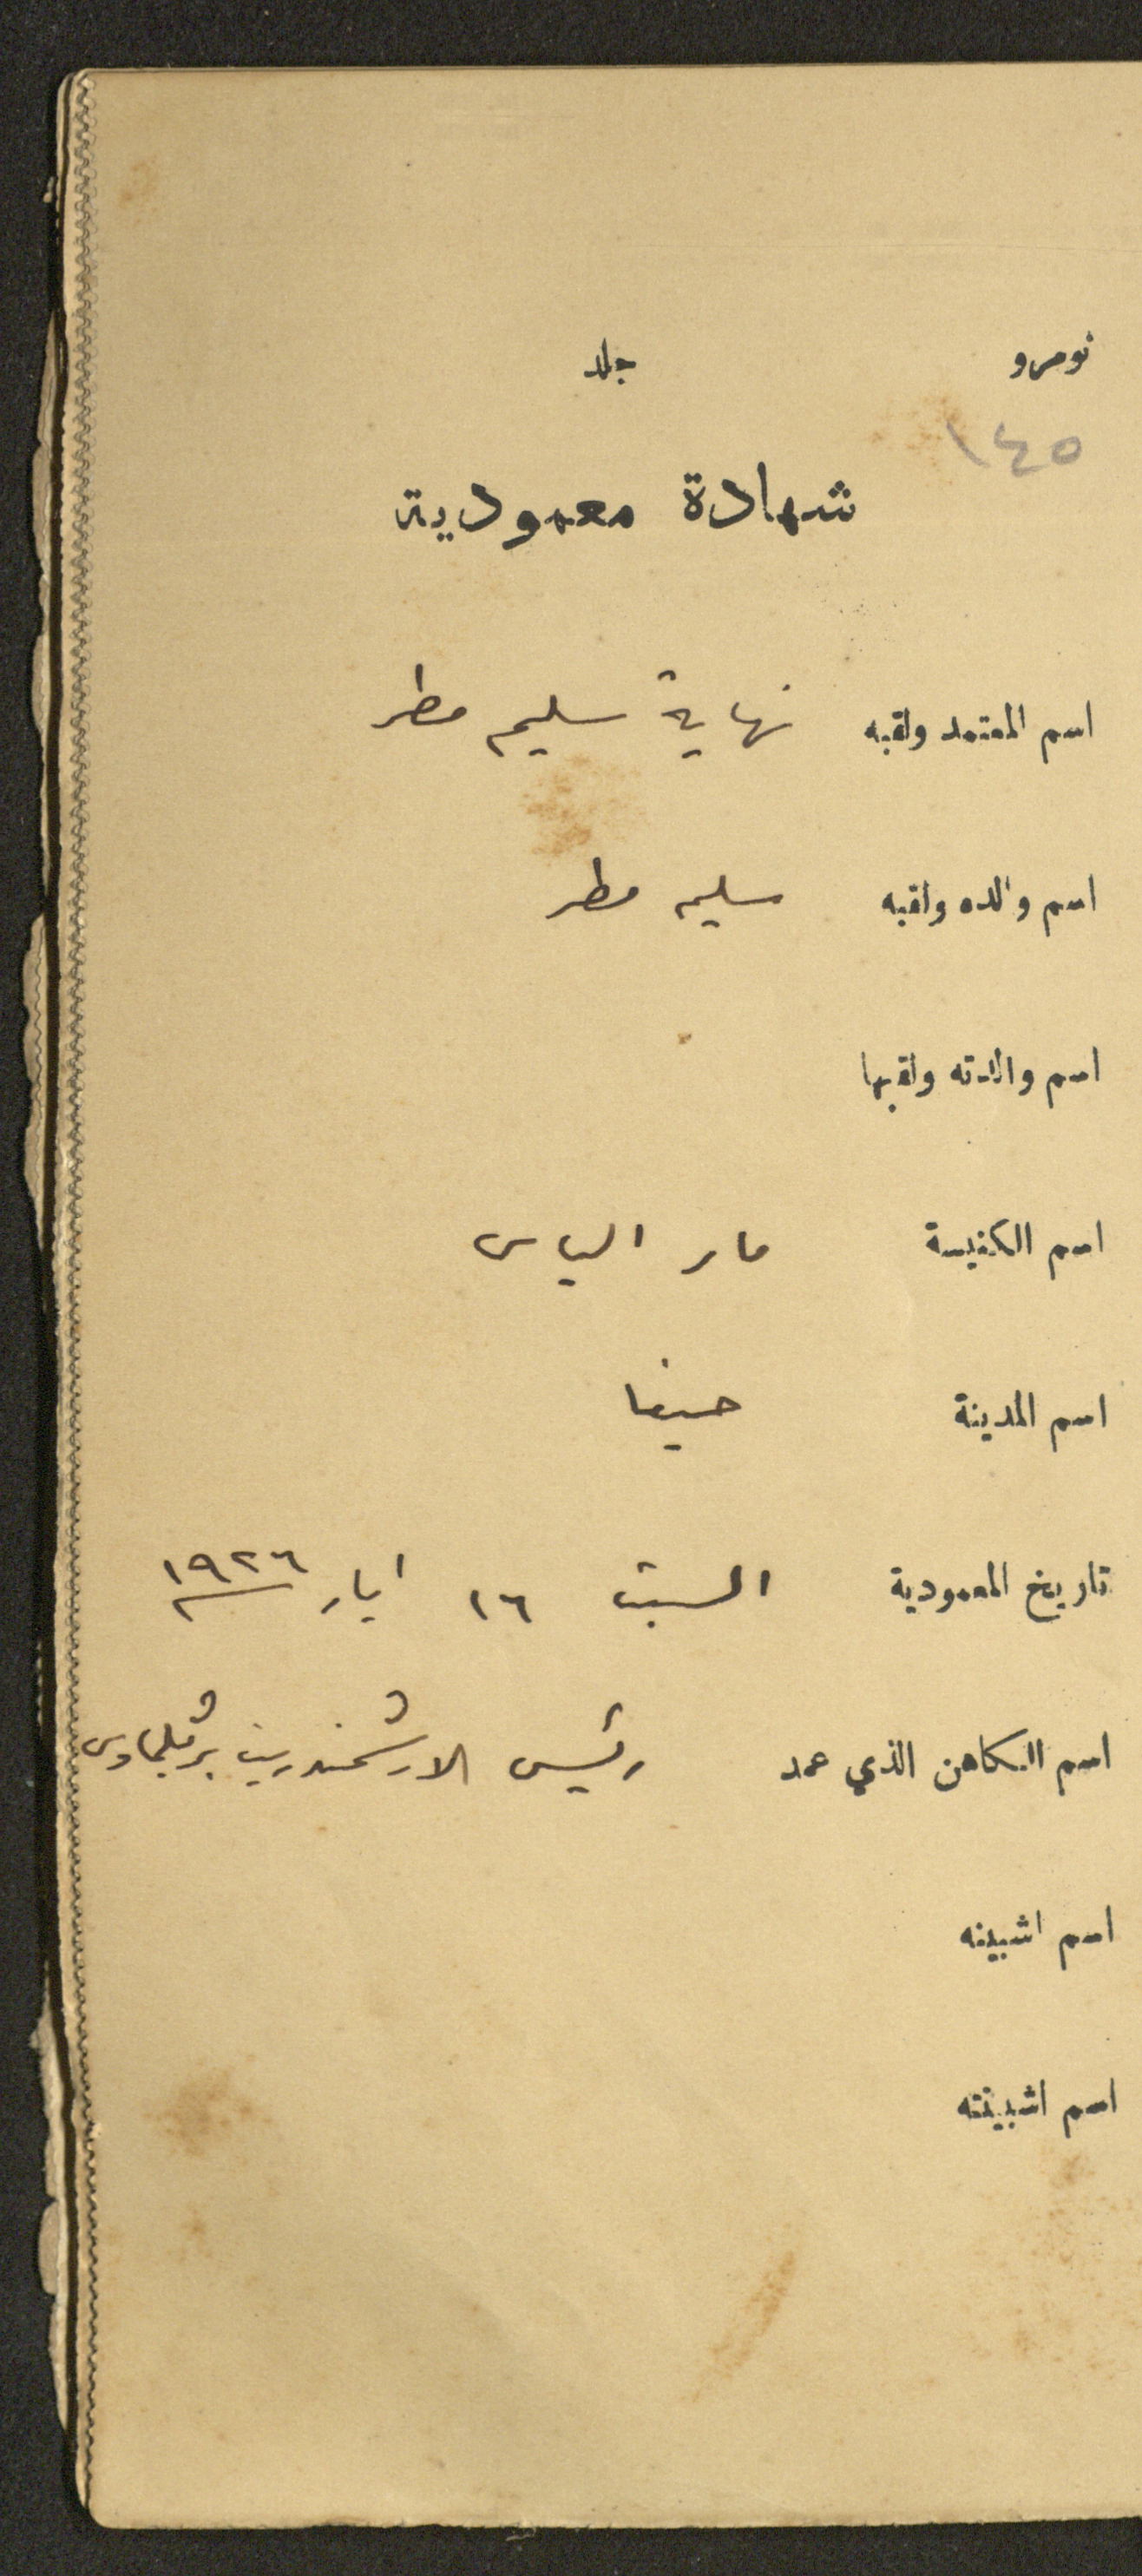 نومرو جلد
١٤٥
شهادة معمودية
اسم المعتمد ولقبه نهاية سليم مطر
اسم والده ولقبه سليم مطر
اسم والدته ولقبها
اسم الكنيسة مار الياس
اسم المدينة حيفا
تاريخ المعمودية السبت ١٦ ايار ١٩٢٦
اسم الكاهن الذي عمد رئيس الارشمندريت برثلماوس
اسم اشبينه
اسم اشبينته